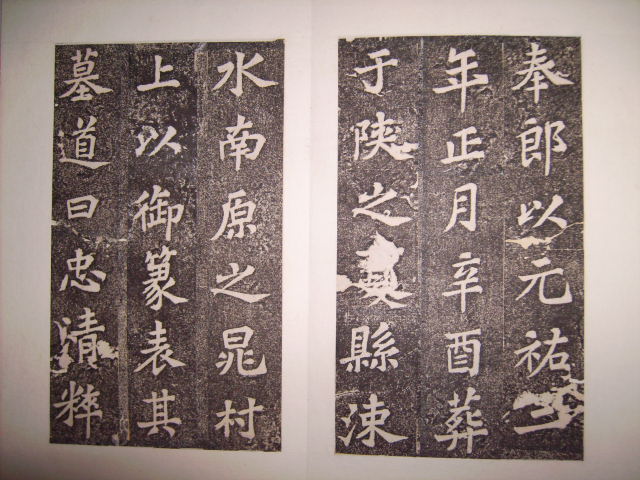 奉郎以元祐二
年正月辛酉葬
于陝之夏縣涑
水南原之晁村
上以御篆表其
墓道曰忠清粹